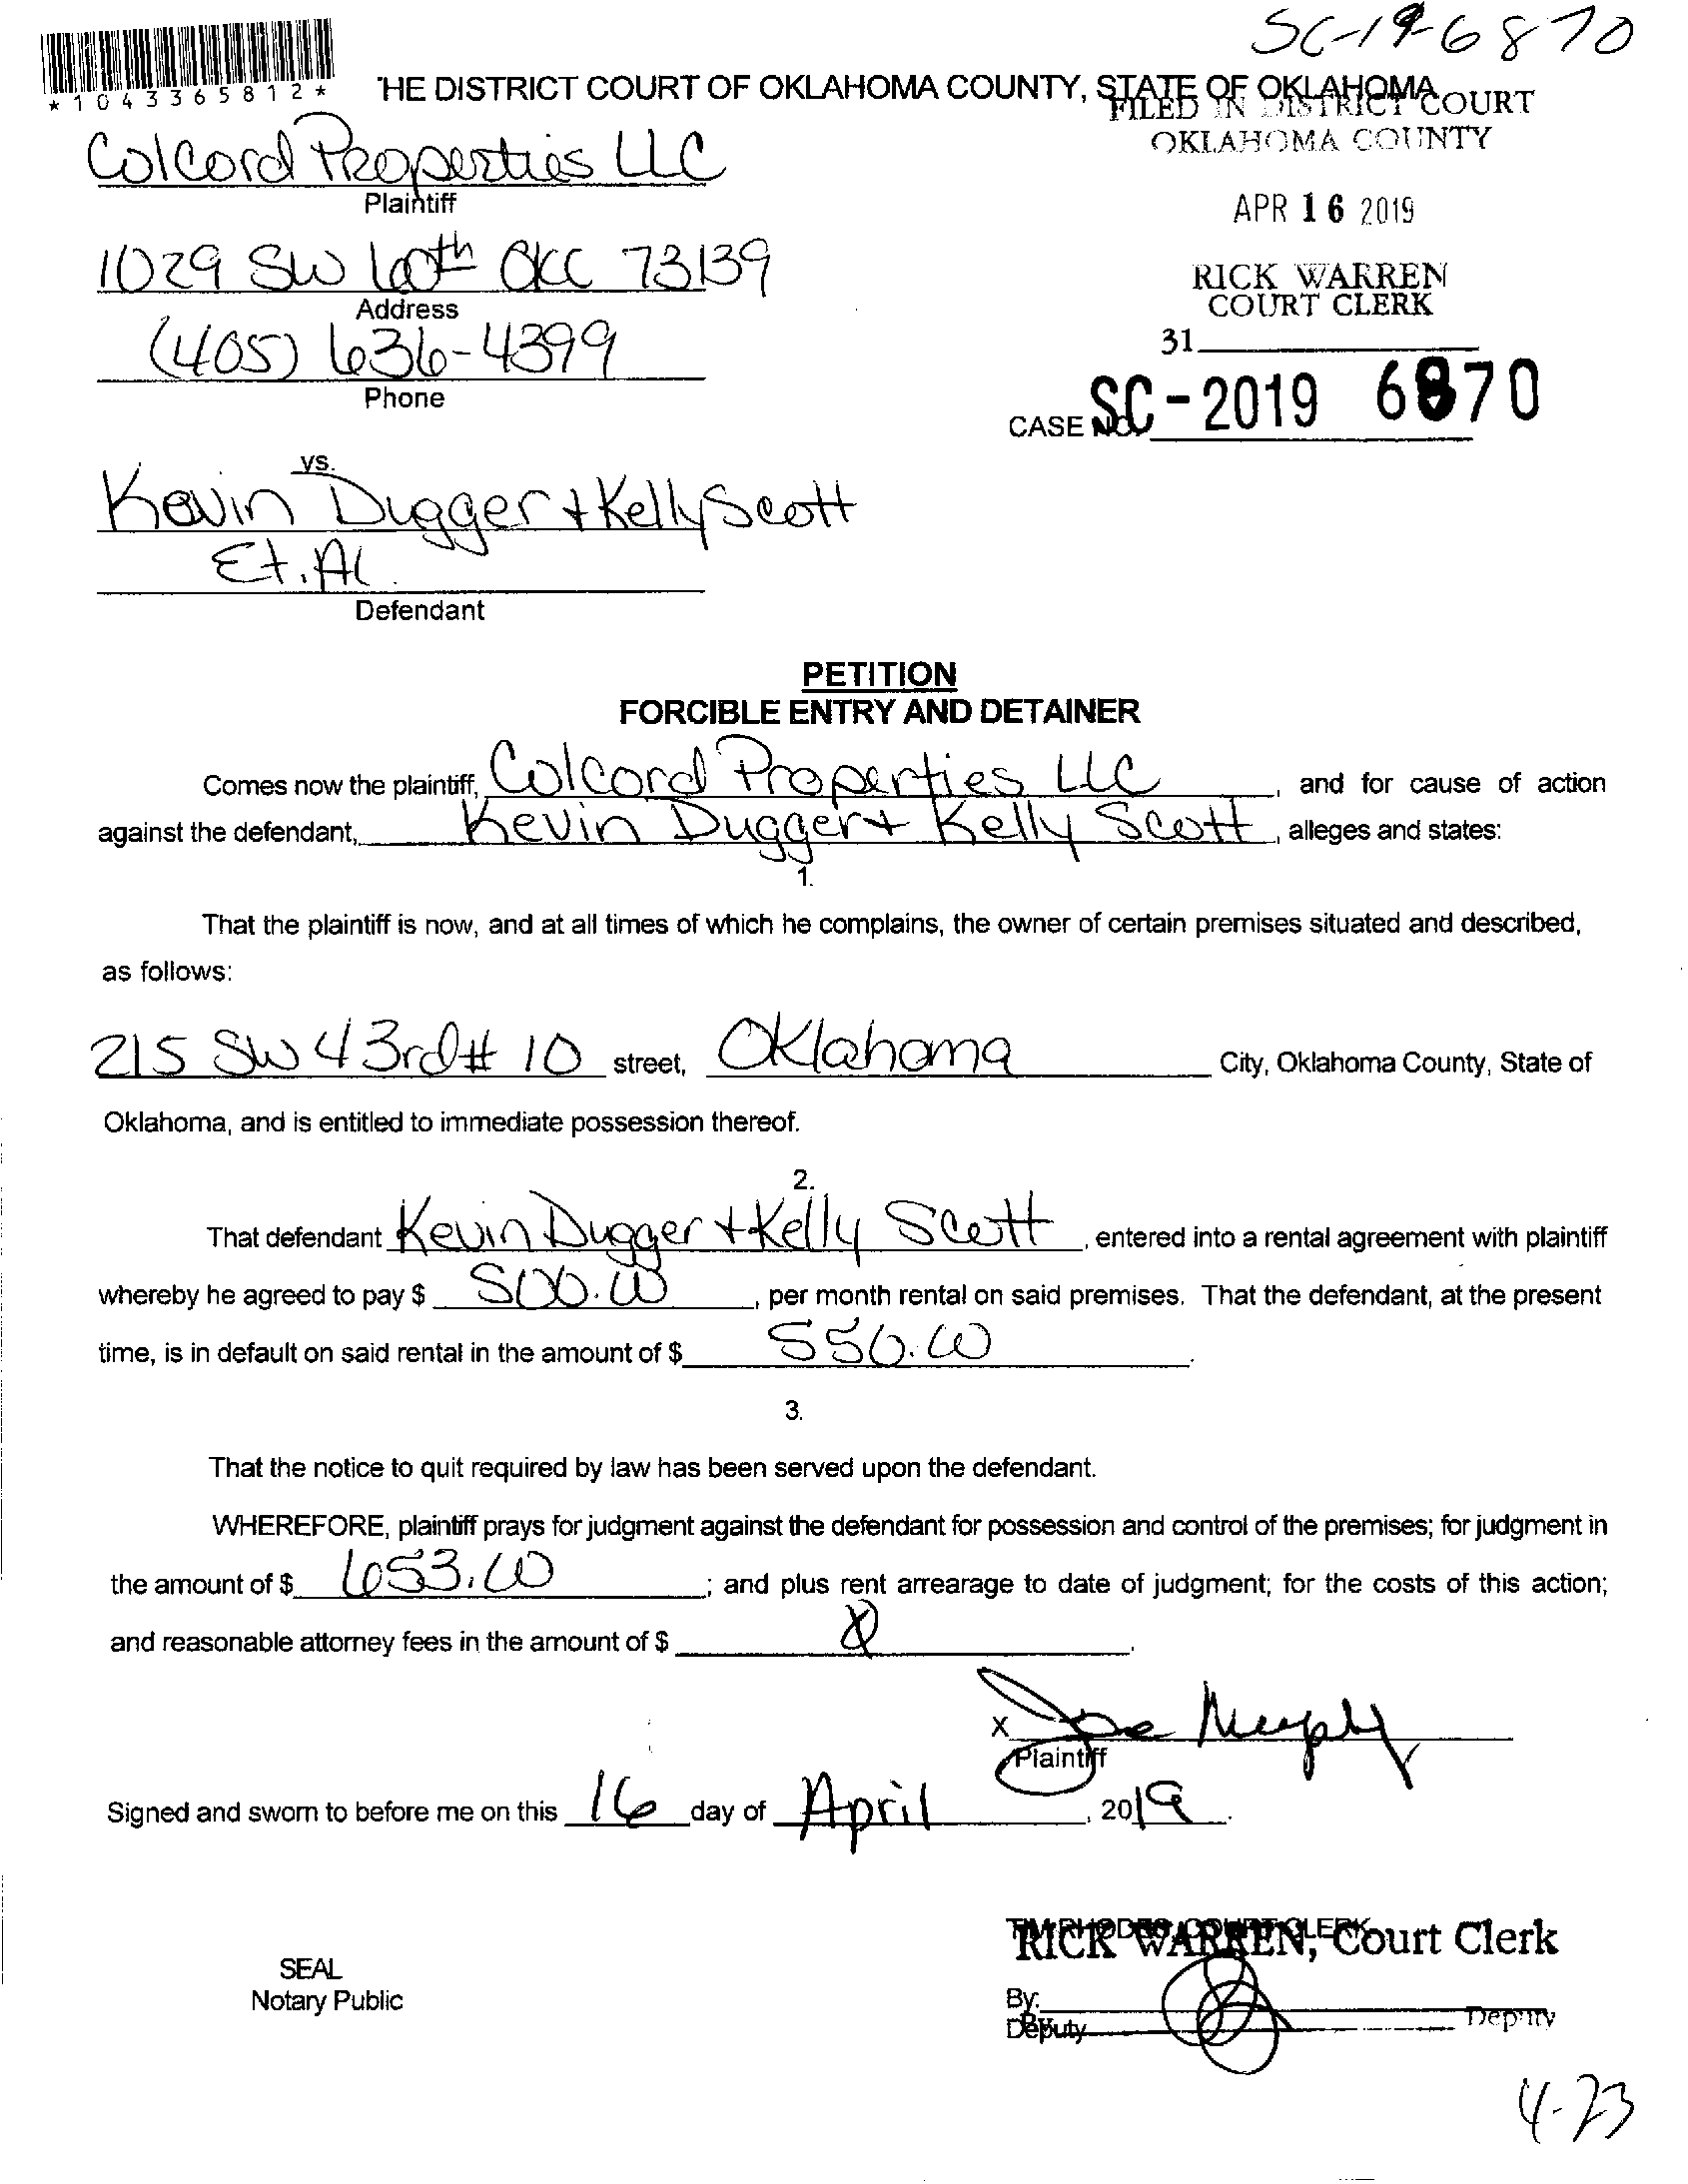 SC-19-6870
*1043365812*
THE DISTRICT COURT OF OKLAHOMA COUNTY, STATE OF OKLAHOMA
FILED IN DISTRICT COURT
OKLAHOMA COUNTY
Colcord Properties LLC
Plaintiff
APR 16 2019
1029 SW 60th OKC 73139
Address
RICK WARREN
COURT CLERK
(405) 636-4399
Phone
31
CASE NO. SC-2019 6870
vs.
Kevin Dugger + Kelly Scott
Et. Al.
Defendant
PETITION
FORCIBLE ENTRY AND DETAINER
Comes now the plaintiff, Colcord Properties LLC, and for cause of action
against the defendant, Kevin Dugger + Kelly Scott, alleges and states:
1.
That the plaintiff is now, and at all times of which he complains, the owner of certain premises situated and described,
as follows:
215 SW 43rd # 10 street, Oklahoma City, Oklahoma County, State of
Oklahoma, and is entitled to immediate possession thereof.
2.
That defendant Kevin Dugger + Kelly Scott, entered into a rental agreement with plaintiff
whereby he agreed to pay $ 500.00, per month rental on said premises. That the defendant, at the present
time, is in default on said rental in the amount of $ 550.00.
3.
That the notice to quit required by law has been served upon the defendant.
WHEREFORE, plaintiff prays for judgment against the defendant for possession and control of the premises; for judgment in
the amount of $ 653.00; and plus rent arrearage to date of judgment; for the costs of this action;
and reasonable attorney fees in the amount of $
X Joe Murphy
Plaintiff
Signed and sworn to before me on this 16 day of April, 2019.
TIM RHODES, COURT CLERK
RICK WARREN, Court Clerk
SEAL
Notary Public
By:
By Deputy
Deputy
4-23